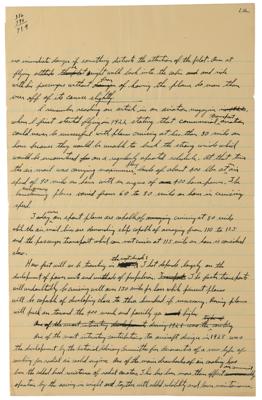 no immediate danger if something detracts the attention of the pilot. One at
flying altitude might walk back into the cabin and
his passengers without of having the plane do more than
veer off of its course slightly.
I remember reading an article in an aviation magazine in
when I first started flying in 1922, stating that commercial aviation
could never be successful with planes cruising at less than 80 miles an
hour because they would be unable to buck the strong winds which
would be encountered on a regularly operated schedule. At that time
the air mail was carrying maximum loads of about 400 lbs at air
speed of 95 miles an hour with an engine of 400 horse power. The
planes varied from 60 to 80 miles an hour in cruising
speed.
Today, our sport planes are capable of cruising at 80 miles
while the air mail lines are demanding ships capable of averaging from 110 to 125
and the passenger transport which can not cruise at 115 miles an hour is considered
slow.
How fast will we be traveling in That depends largely on the
development of power units and methods of propulsion. The faster transports
will undoubtedly be cruising well over 150 miles per hour while pursuit planes
will be capable of developing close to three hundred if necessary. Racing planes
will push on toward the 400 mark and possibly go higher.
One of the most interesting developments during 1928 was the
One of the most interesting contributions to aircraft design in 1928 was
the development by the National Advisory Committee for Aeronautics of a new type of
cowling for radial air cooled engines. One of the main drawbacks of air cooling has
been the added head resistance of radial motors. This has been more than offset
operation by the saving in weight and together with added reliability and less maintenance